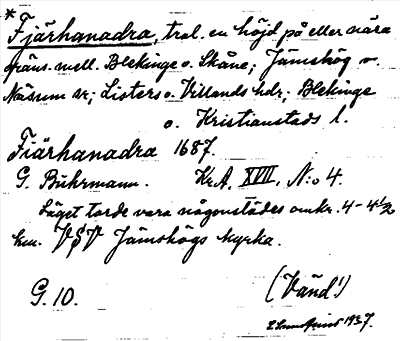 *
Fjärhanadra, trol. en höjd på eller nära
gräns. mell. Blekinge o. Skåne; Jämshög o.
Näsum sr; Listers o. Villands hdr; Blekinge
o. Kristianstads l.
Fiärhanadra 1687.
G. Buhrmann. Kr.A. XVII, N:o 4.
Läget torde vara någonstädes omkr. 4-4½
km. VSV Jämshögs kyrka.
G. 10. (Vänd!)
1937.